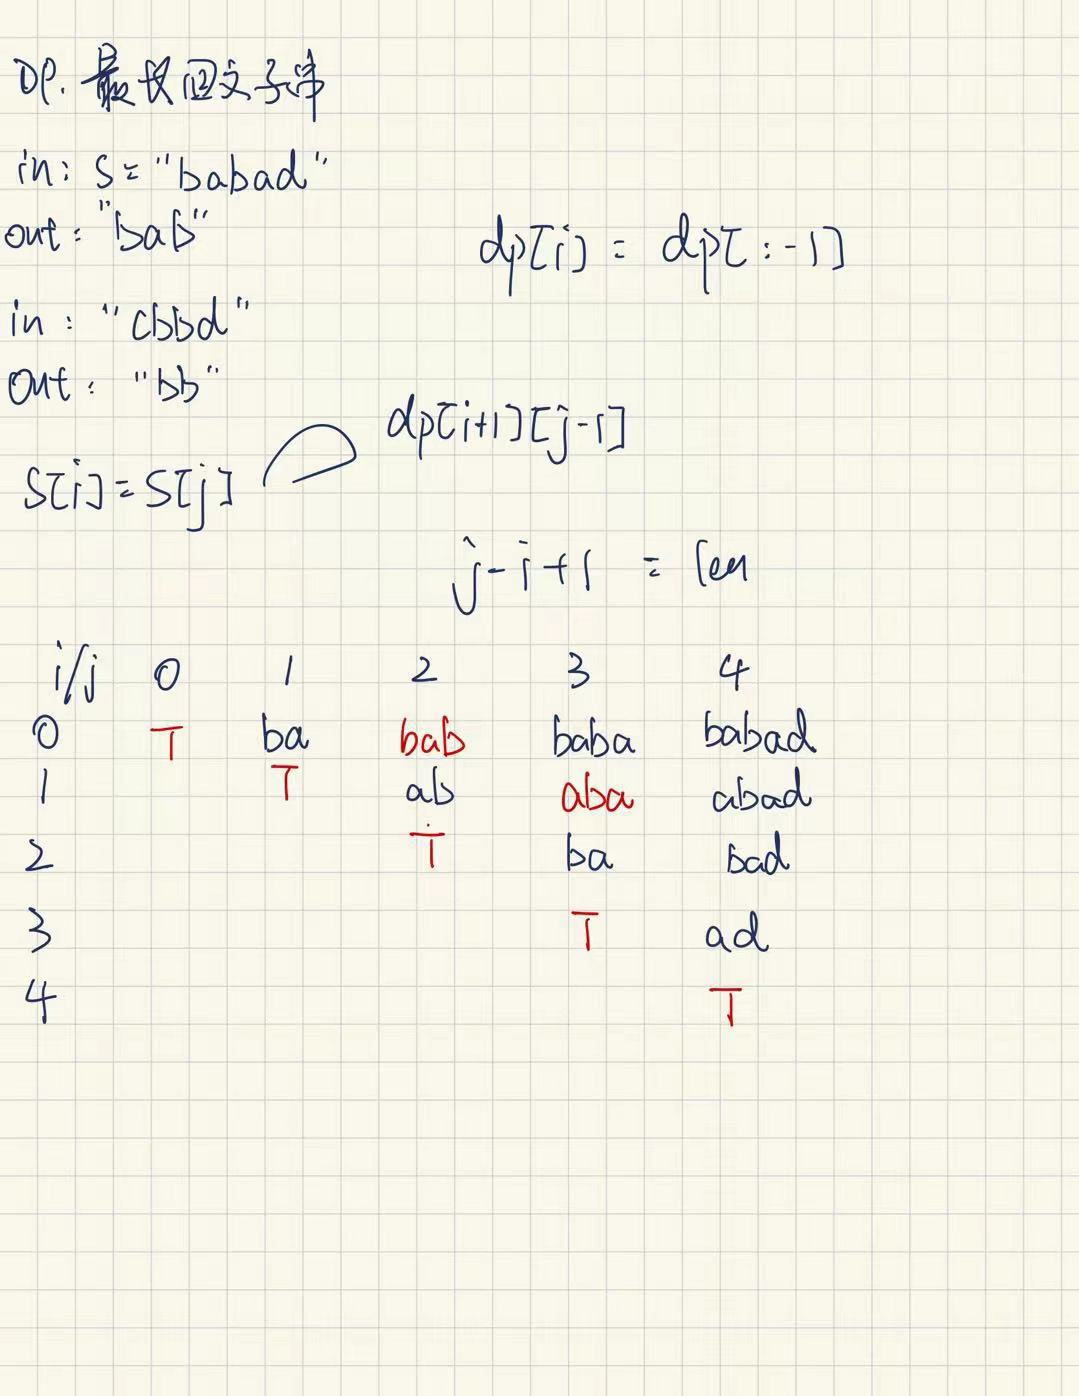 DP. 最长回文子串
in: s = "babad"
out: "bab"
dp[i] = dp[:-1]
in: "cbbd"
out: "bb"
dp[i+1][j-1]
S[i] = S[j]
j-i+1 = len
i/j 0 1 2 3 4
0 T ba bab baba babad
1 T ab aba abad
2 T ba bad
3 T ad
4 T